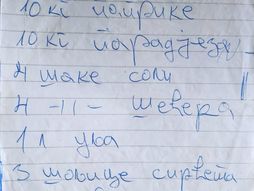 10 кг пайрике
10 кг парадјезу
4 шаке соли
4 -11- шећера
1 л уља
3 шољице сирћета